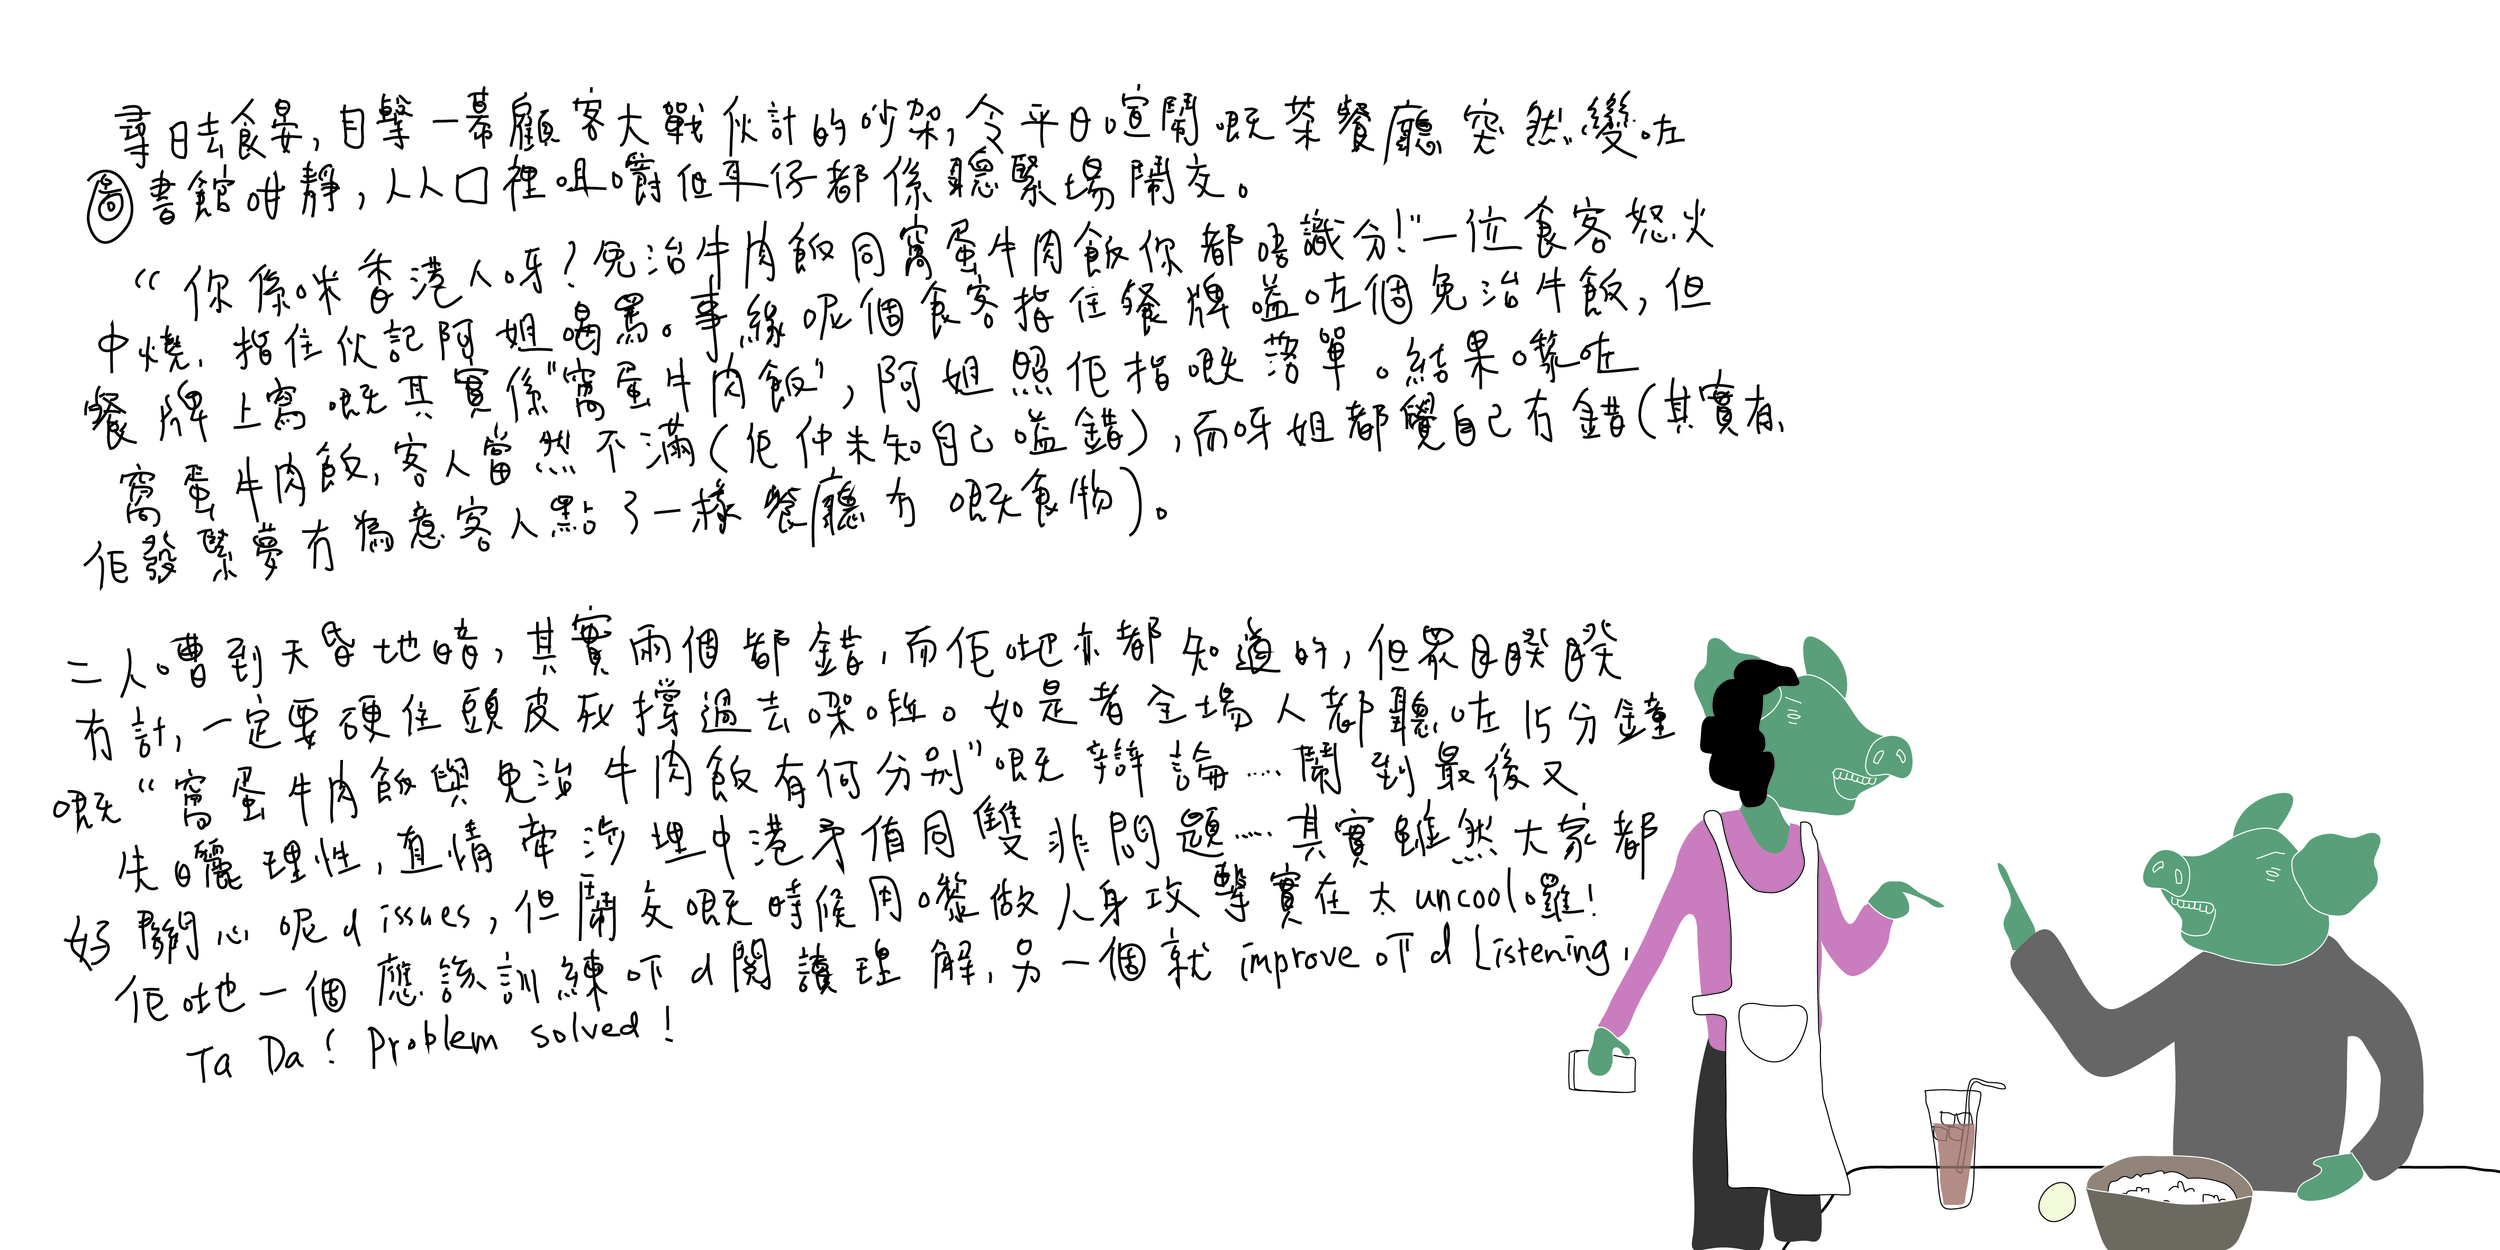 尋日去食晏,目擊一幕顧客大戰伙計的吵架,令平日喧鬧嘅茶餐廳突然變咗
圖書館咁靜,人人口裡咀嚼但耳仔都係聽緊場鬧交。
“你係咪香港人呀?免治牛肉飯同窩蛋牛肉飯你都唔識分!”一位食客怒火
中燒,指住伙記阿姐喝罵。事緣呢個食客指住餐牌嗌咗個免治牛飯,但
餐牌上寫嘅其實係“窩蛋牛肉飯”,阿姐照佢指嘅落單。結果嚟咗
窩蛋牛肉飯,客人當然不滿(佢仲未知自己嗌錯),而呀姐都覺自己冇錯(其實有,
佢發緊夢冇為意客人點了一樣餐廳冇嘅食物)。
二人嘈到天昏地暗,其實兩個都錯,而佢哋亦都知道的,但眾目睽睽
冇計,一定要硬住頭皮砌撐過去㗎啦。如是者全場人都聽咗15分鐘
嘅“窩蛋牛肉飯與免治牛肉飯有何分別”嘅辯論....鬧到最後又
失曬理性,直情牽涉埋中港矛盾同雙非問題....其實雖然大家都
好關心呢d issues,但鬧交嘅時候用嚟做人身攻擊實在太uncool囉!
佢哋一個應該訓練吓d閱讀理解,另一個就improve吓d listening,
Ta Da! Problem solved!